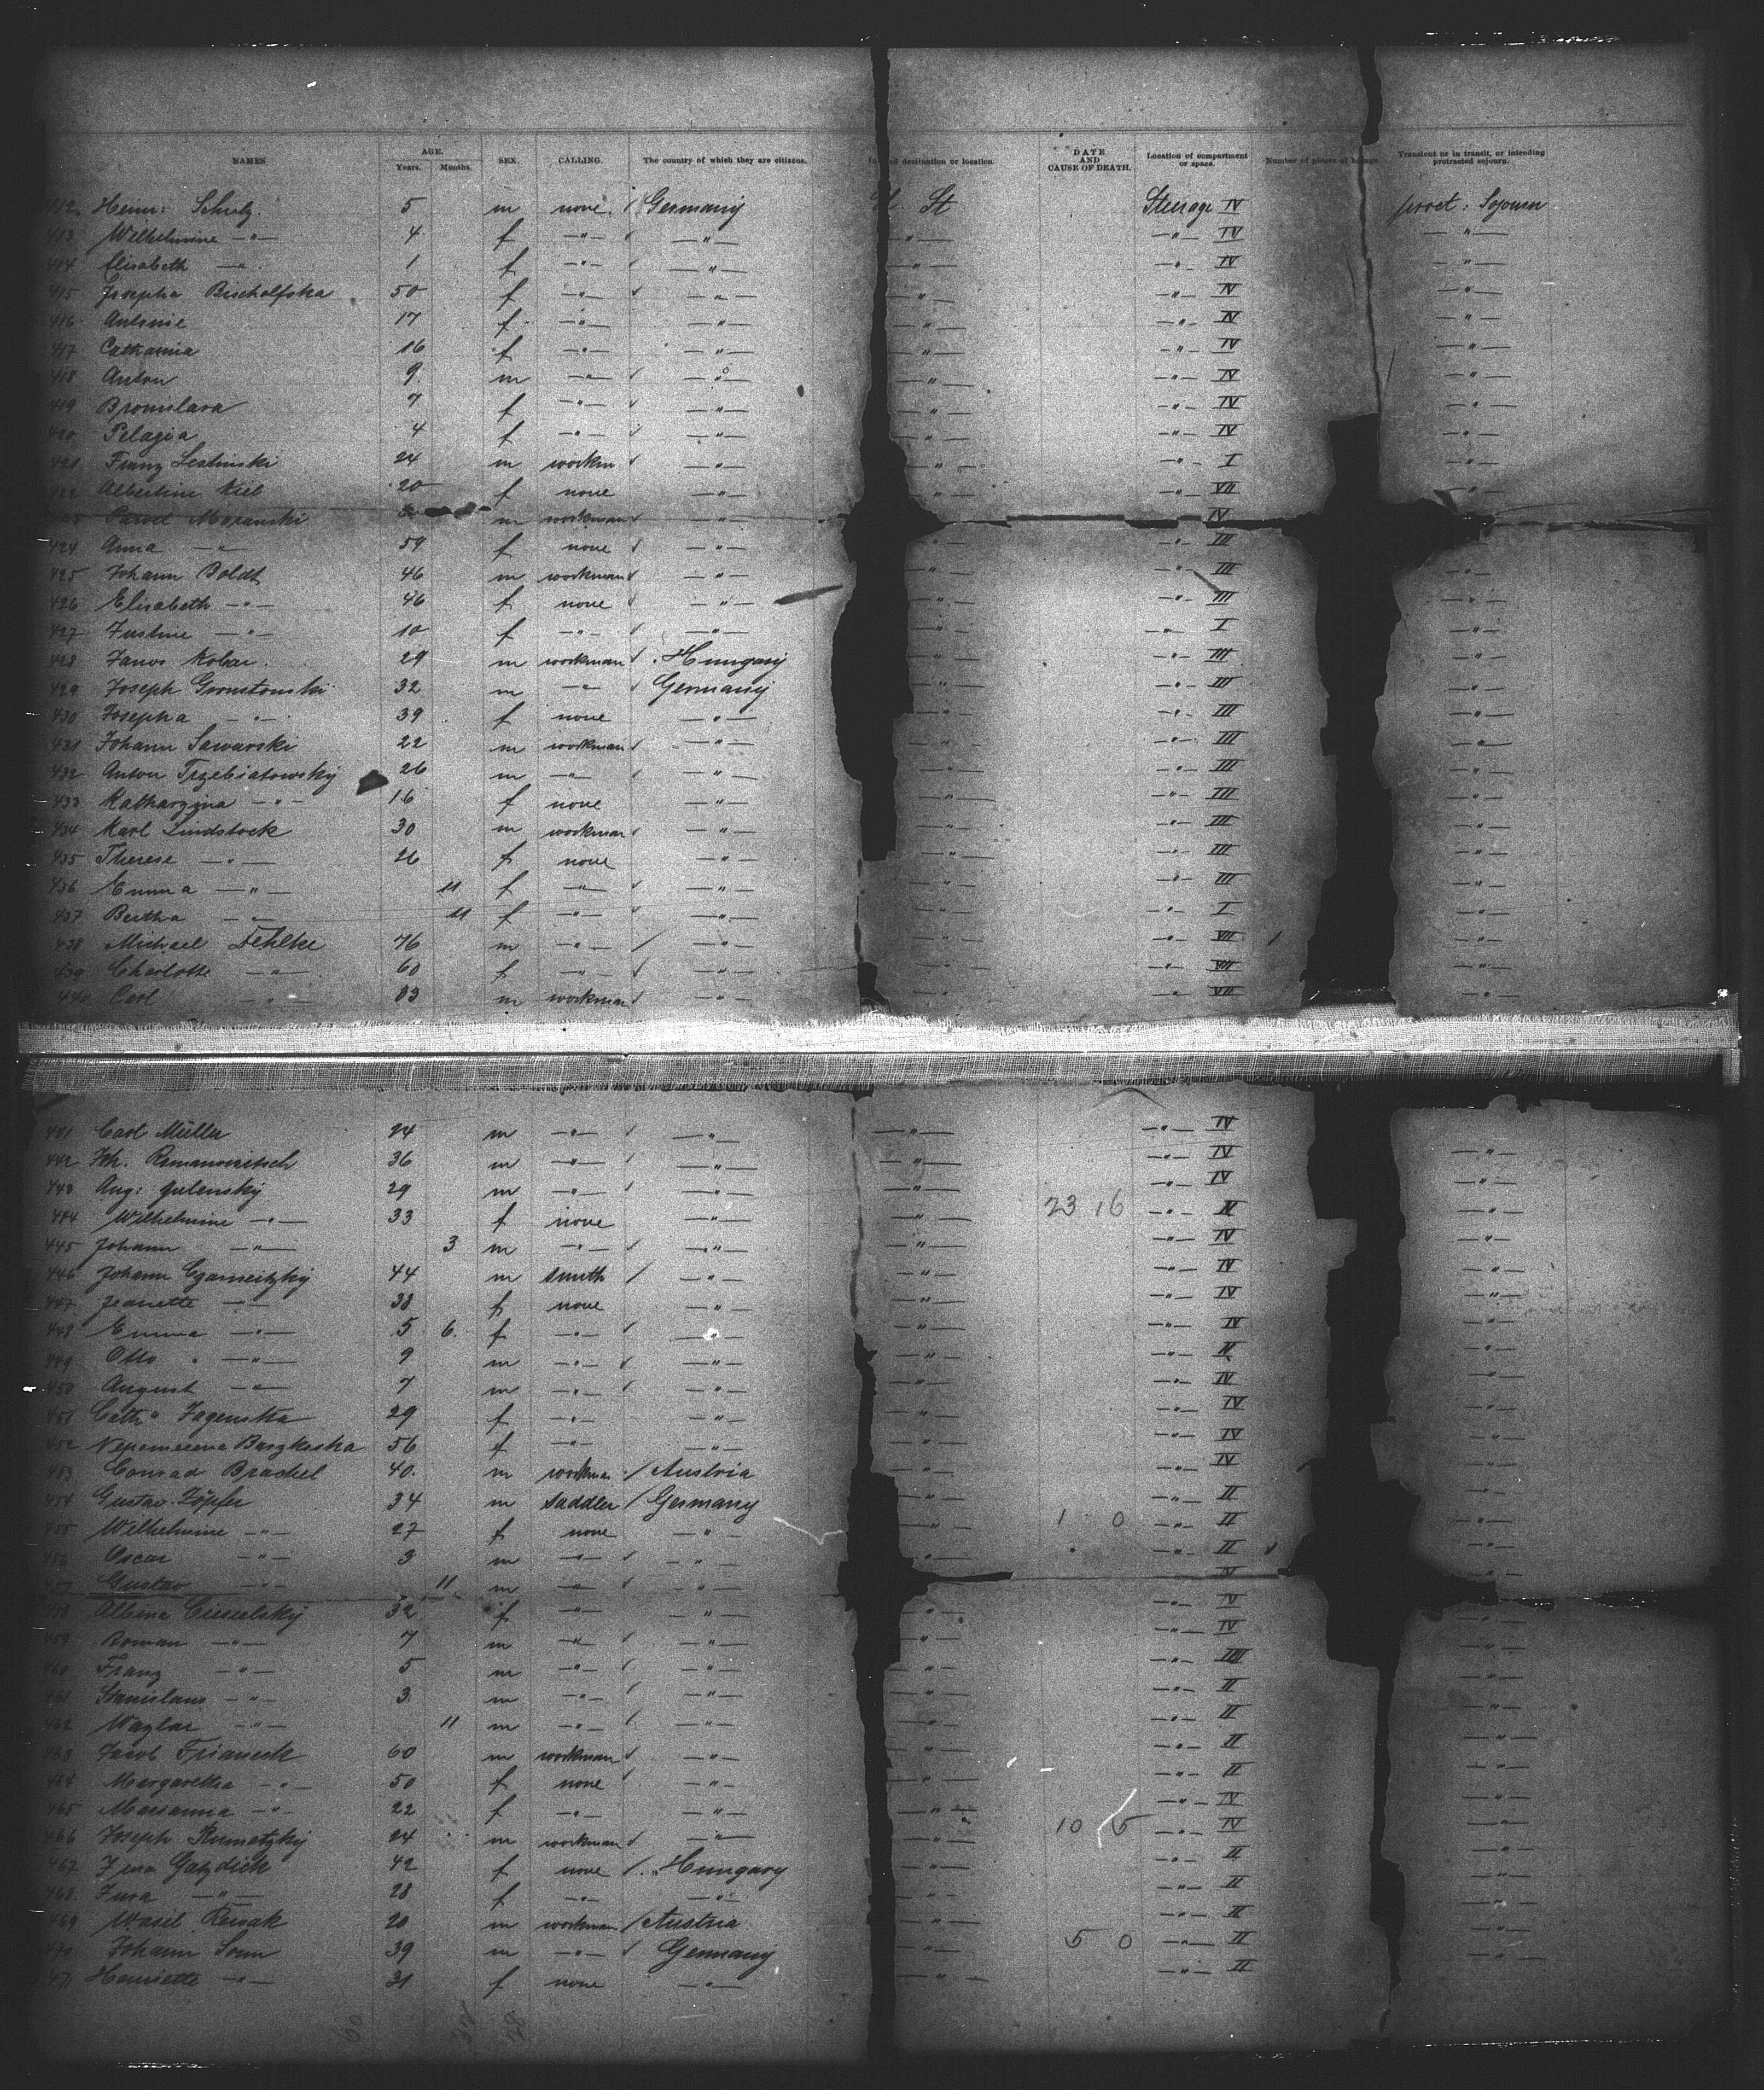 NAMES AGE. Years. Months. SEX. CALLING. The country of which they are citizens. destination or location. DATE AND CAUSE OF DEATH. Location of compartment or space. Number of pieces of Transient or in transit, or intending protracted sojourn.
412 Heinr: Schulz. 5 m none. / Germany St Steerage IV prot: Sojourn
413 Wilhelmine —"— 4 f —"— —"— —"— —"— IV —"—
414 Elisabeth —"— 1 f —"— —"— —"— —"— IV —"—
415 Josepha Bischolfska 50 f —"— —"— —"— —"— IV —"—
416 Antonie 17 f —"— —"— —"— —"— IV —"—
417 Catharina 16 f —"— —"— —"— —"— IV —"—
418 Anton 9. m —"— —"— —"— —"— IV —"—
419 Bronislava 7 f —"— —"— —"— —"— IV —"—
420 Pelagia 4 f —"— —"— —"— —"— IV —"—
421 Franz 24 m workm —"— —"— —"— I —"—
422 Albertine Kieb 20 f none —"— —"— —"— VII —"—
m workman —"— IV
424 Anna —"— 59 f none —"— —"— —"— III —"—
425 Johann Boldt 46 m workman —"— —"— —"— III —"—
426 Elisabeth —"— 46 f none —"— —"— —"— III —"—
427 Justine —"— 10 f —"— —"— —"— —"— I —"—
428 Janos Kobar. 29 m workman Hungary —"— —"— III —"—
429 Joseph 32 m —"— Germany —"— —"— III —"—
430 Josepha —"— 39 f none —"— —"— —"— III —"—
431 Johann Sawarski 22 m workman —"— —"— —"— III —"—
432 Anton Trzebiatowsky 26 m —"— —"— —"— —"— III —"—
433 Katharzina —"— 16 f none —"— —"— —"— III —"—
434 Karl Lindstock 30 m workman —"— —"— —"— III —"—
435 Therese —"— 26 f none —"— —"— —"— III —"—
436 Emma —"— 11 f —"— —"— —"— —"— III —"—
437 Bertha —"— 11 f —"— —"— —"— —"— I —"—
438 Michael Fehlke 76 m —"— / —"— —"— —"— VII —"—
439 Charlotte —"— 60 f —"— —"— —"— —"— VII —"—
440 Carl —"— 33 m workman —"— —"— —"— VII —"—
441 Carl Müller 24 m —"— —"— —"— —"— IV
442 Joh. Romanowitsch 36 m —"— —"— —"— —"— IV —"—
443 Aug: Gulensky 29 m —"— —"— —"— —"— IV —"—
444 Wilhelmine —"— 33 f none —"— —"— 23 16 —"— IV —"—
445 Johann —"— 3 m —"— —"— —"— —"— IV —"—
446 Johann Czarneitzky 44 m smith / —"— —"— —"— IV —"—
447 Jeanette —"— 38 f none —"— —"— —"— IV —"—
448 Emma —"— 5 6. f —"— —"— —"— —"— IV —"—
449 Otto —"— 9 m —"— —"— —"— —"— IV —"—
450 August —"— 7 m —"— —"— —"— —"— IV —"—
451 Cathª Jagenska 29 f —"— —"— —"— —"— IV —"—
452 56 f —"— —"— —"— —"— IV —"—
453 Conrad Brachel 40. m workman / Austria —"— —"— IV —"—
454 Gustav Zöpfer 34 m saddler / Germany —"— —"— II —"—
455 Wilhelmine —"— 27 f none —"— —"— 1 0 —"— II —"—
456 Oscar —"— 3 m —"— —"— —"— —"— II —"—
457 Gustav —"— 11 m —"— —"— IV
458 Albina Ciesielsky 32 f —"— —"— —"— —"— IV —"—
459 Roman —"— 7 m —"— —"— —"— —"— IV —"—
460 Franz —"— 5 m —"— —"— —"— —"— IIII —"—
461 Stanislaus —"— 3 m —"— —"— —"— —"— II —"—
462 Wazlar —"— 11 m —"— —"— —"— —"— II
463 Jacob 60 m workman —"— —"— —"— II —"—
464 Margaretha —"— 50 f none —"— —"— —"— II —"—
465 Marianna —"— 22 f —"— —"— —"— —"— IV —"—
466 Joseph Rumatzky 24 m workman —"— —"— 10 5 —"— IV —"—
467 Gatzdick 42 f none / Hungary —"— —"— II —"—
468. —"— 28 f —"— —"— —"— —"— II —"—
469 Wasil Rewak 20 m workman / Austria —"— —"— II —"—
470 Johann Sonn 39 m —"— Germany —"— 5 0 —"— II —"—
471 Henriette —"— 31 f none —"— —"— —"— II